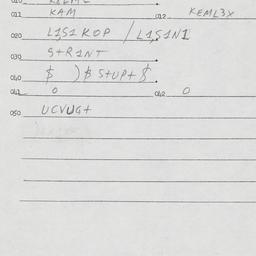 011 KAM 012 KEML3X
020 L1S1 KOP / L1,S1N1
030 S+R1NT
040 $ ) $ S+UP+ $
041 0 042 0
050 UCVUG+